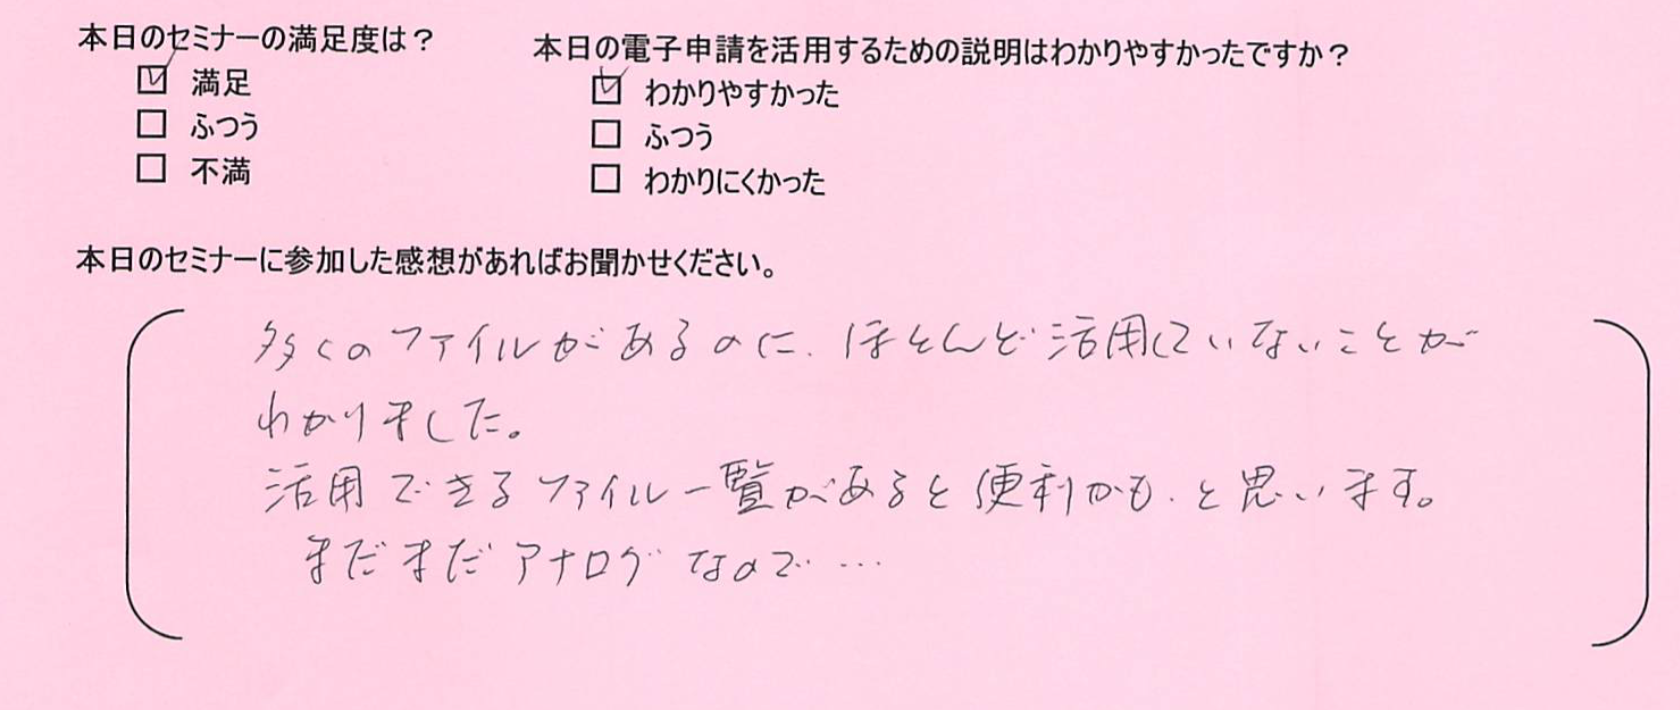 本日のセミナーの満足度は？
☑ 満足
☐ ふつう
☐ 不満
本日の電子申請を活用するための説明はわかりやすかったですか？
☑ わかりやすかった
☐ ふつう
☐ わかりにくかった
本日のセミナーに参加した感想があればお聞かせください。
多くのファイルがあるのに、ほとんど活用していないことが
わかりました。
活用できるファイル一覧があると便利かも、と思います。
まだまだアナログなので…